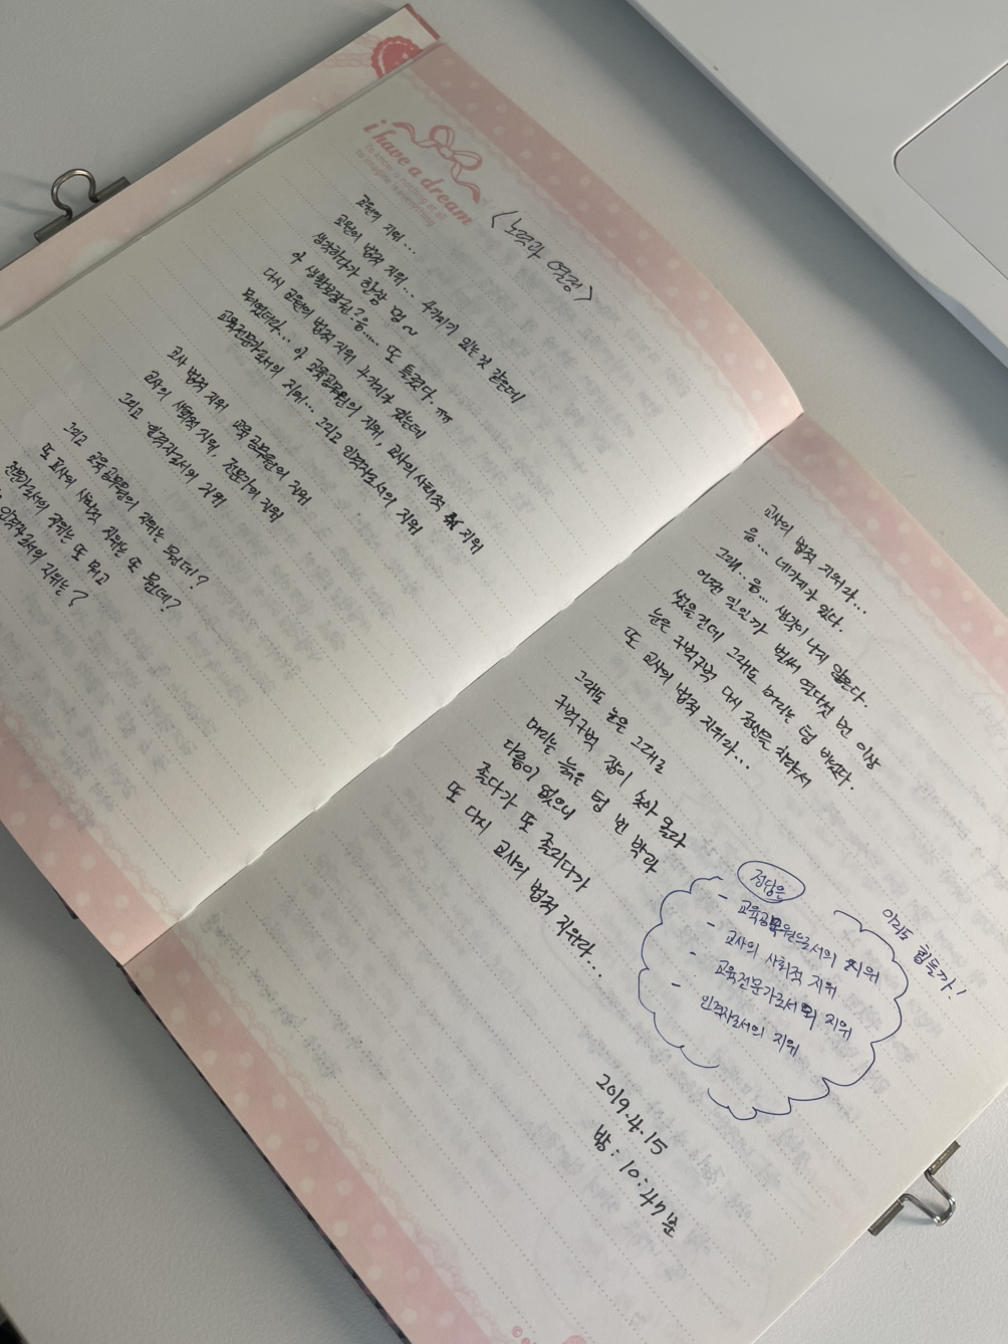 i have a dream
To know is nothing at all
to imagine is everything
<노력과 열정>
교원의 지위...
교원의 법적 지위... 4가지가 있는것 같은데
생각하다가 한참 멍~
아 생활보장권?음..... 또 틀렸다. ㅠㅠ
다시 교원의 법적 지위 4가지가 있는데
뭐였더라... 아 교육공무원의 지위, 교사의 사회적 지위
교육전문가로서의 지위... 그리고 인격자로서의 지위
교사 법적 지위 교육 공무원의 지위
교사의 사회적 지위, 전문가의 지위
그리고 인격자로서의 지위
그리고 교육공무원의 지위는 뭔데?
또 교사의 사회적 지위는 또 뭔데?
전문가로서의 지위는 또 뭐고
인격자로서의 지위는?
교사의 법적 지위라...
음... 네가지가 있다.
그래.. 음... 생각이 나지 않는다.
어떤 일인가 벌써 열다섯 번 이상
썼을건데 그래도 머리는 텅 비었다.
눈은 꾸벅꾸벅 다시 정신을 차려서
또 교사의 법적 지위라...
그래도 눈은 그대로
꾸벅꾸벅 잠이 쏟아 몰라
머리는 늙은 텅 빈 박과
다름이 없으니
졸다가 또 졸리다가
또 다시 교사의 법적 지위라...
정답은
- 교육공무원으로서의 지위
- 교사의 사회적 지위
- 교육전문가로서의 지위
- 인격자로서의 지위
이리도 힘들까!
2019.4.15
밤: 10:47분